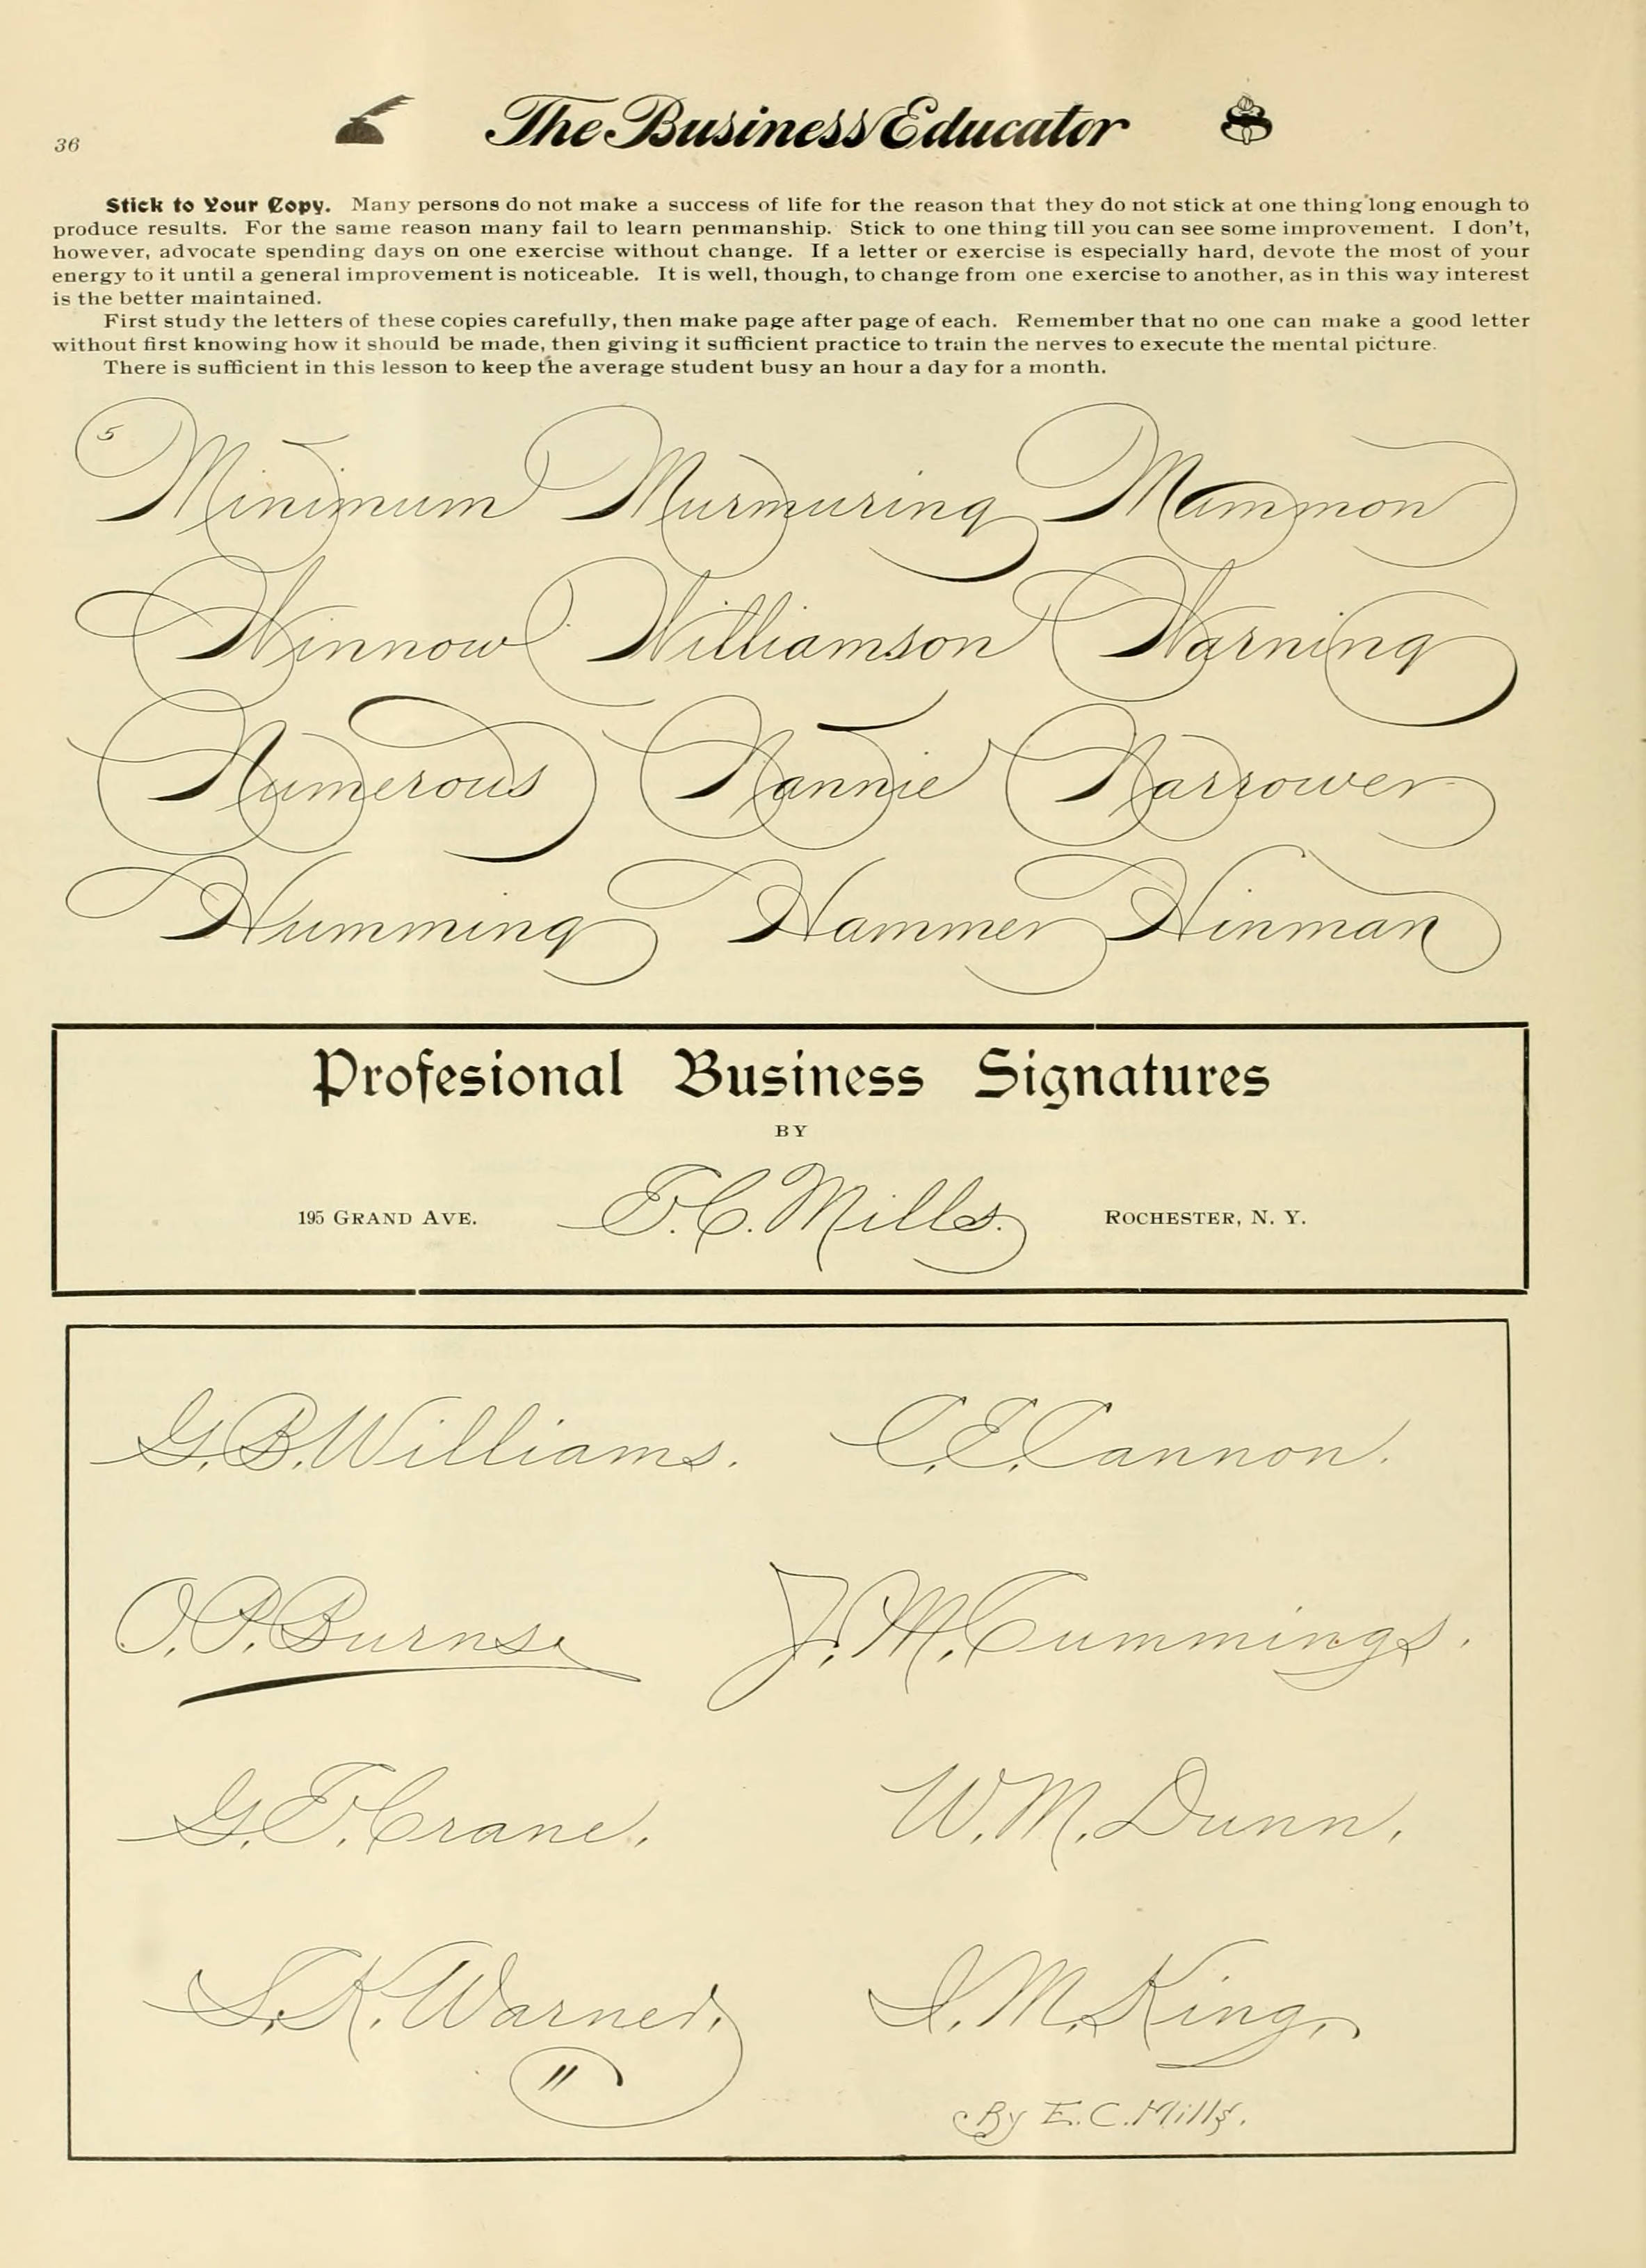 36
The Business Educator
Stick to Your Copy. Many persons do not make a success of life for the reason that they do not stick at one thing long enough to
produce results. For the same reason many fail to learn penmanship. Stick to one thing till you can see some improvement. I don't,
however, advocate spending days on one exercise without change. If a letter or exercise is especially hard, devote the most of your
energy to it until a general improvement is noticeable. It is well, though, to change from one exercise to another, as in this way interest
is the better maintained.
First study the letters of these copies carefully, then make page after page of each. Remember that no one can make a good letter
without first knowing how it should be made, then giving it sufficient practice to train the nerves to execute the mental picture.
There is sufficient in this lesson to keep the average student busy an hour a day for a month.
5
Minimum Murmuring Mammon
Winnow Williamson Warning
Numerous Nannie Narrower
Humming Hammer Hinman
Profesional Business Signatures
BY
195 GRAND AVE. E.C. Mills. ROCHESTER, N. Y.
G.B. Williams. C.E. Cannon.
O.P. Burns. J.M. Cummings.
G.F. Crane. W.M. Dunn.
S.K. Warner. I.M. King.
By E.C. Mills.